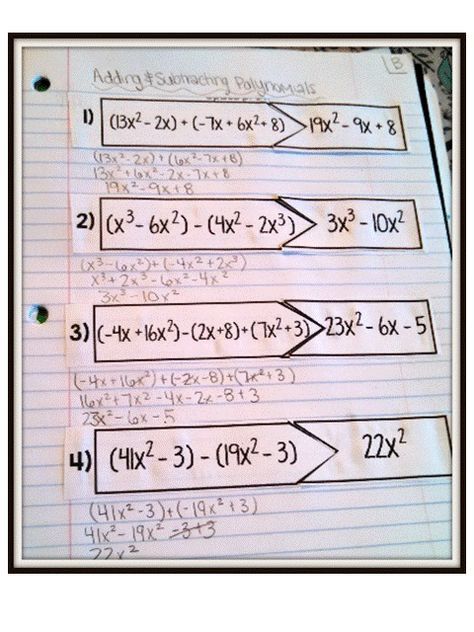 B
Adding & Subtracting Polynomials
1) (13x² - 2x) + (-7x + 6x² + 8) 19x² - 9x + 8
(13x² - 2x) + (6x² - 7x + 8)
13x² + 6x² - 2x - 7x + 8
19x² - 9x + 8
2) (x³ - 6x²) - (4x² - 2x³) 3x³ - 10x²
(x³ - 6x²) + (-4x² + 2x³)
x³ + 2x³ - 6x² - 4x²
3x³ - 10x²
3) (-4x + 16x²) - (2x + 8) + (7x² + 3) 23x² - 6x - 5
(-4x + 16x²) + (-2x - 8) + (7x² + 3)
16x² + 7x² - 4x - 2x - 8 + 3
23x² - 6x - 5
4) (41x² - 3) - (19x² - 3) 22x²
(41x² - 3) + (-19x² + 3)
41x² - 19x² - 3 + 3
22x²